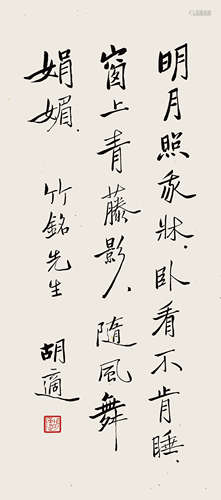 明月照我牀.卧看不肯睡.
窗上青藤影.隨風舞
娟媚.
竹銘先生
胡適